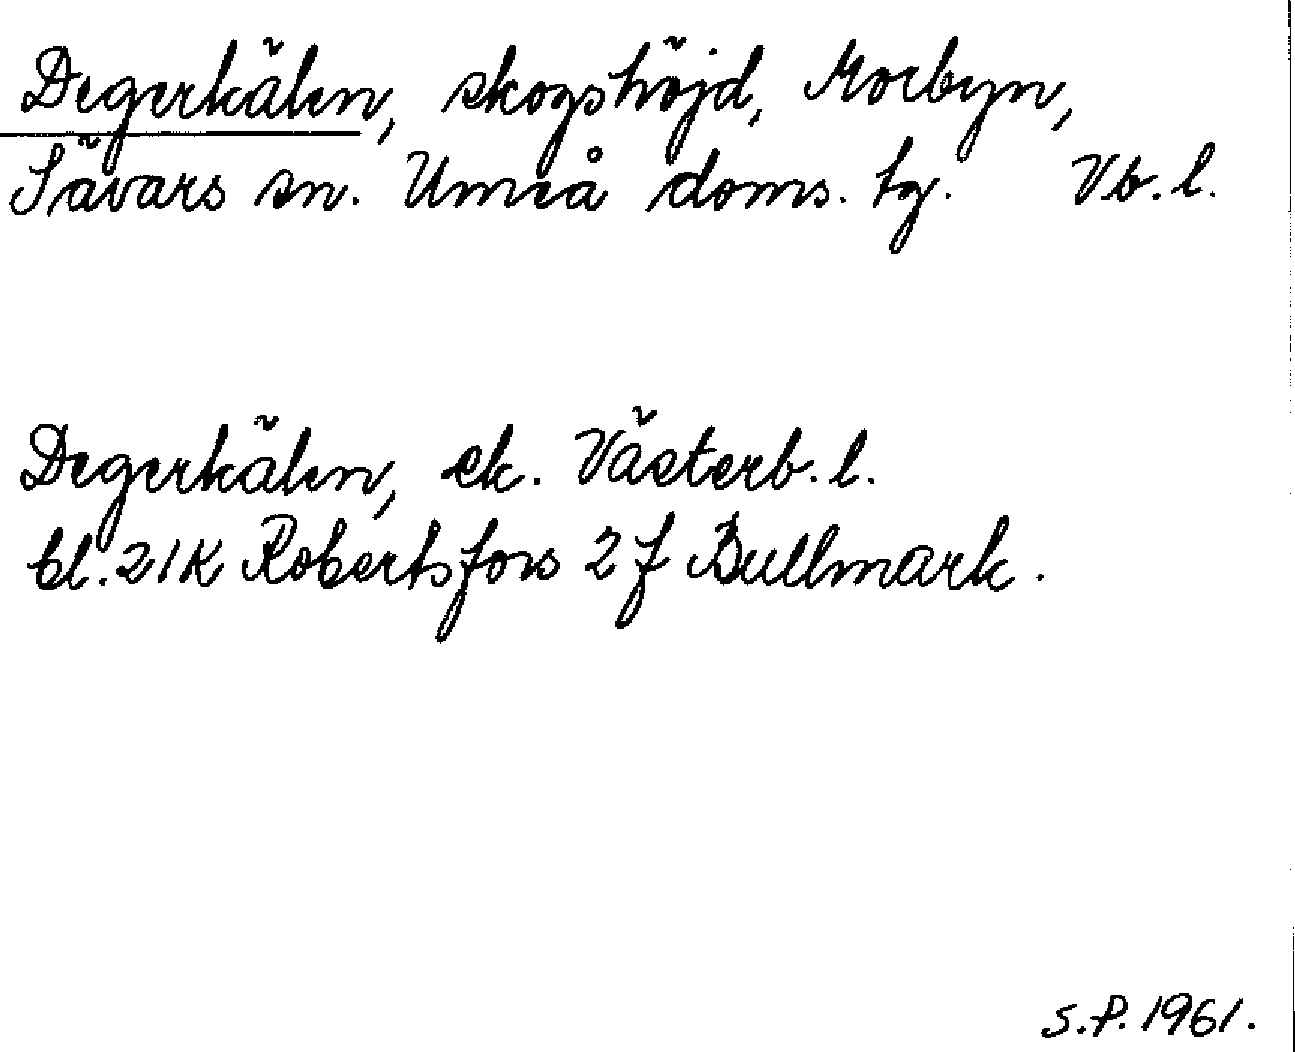 Degerkälen, skogshöjd, Morbyn,
Sävars sn. Umeå doms. tg. Vb. l.
Degerkälen, ek. Västerb. l.
bl. 21K Robertsfors 2 f Bullmark.
S.P. 1961.